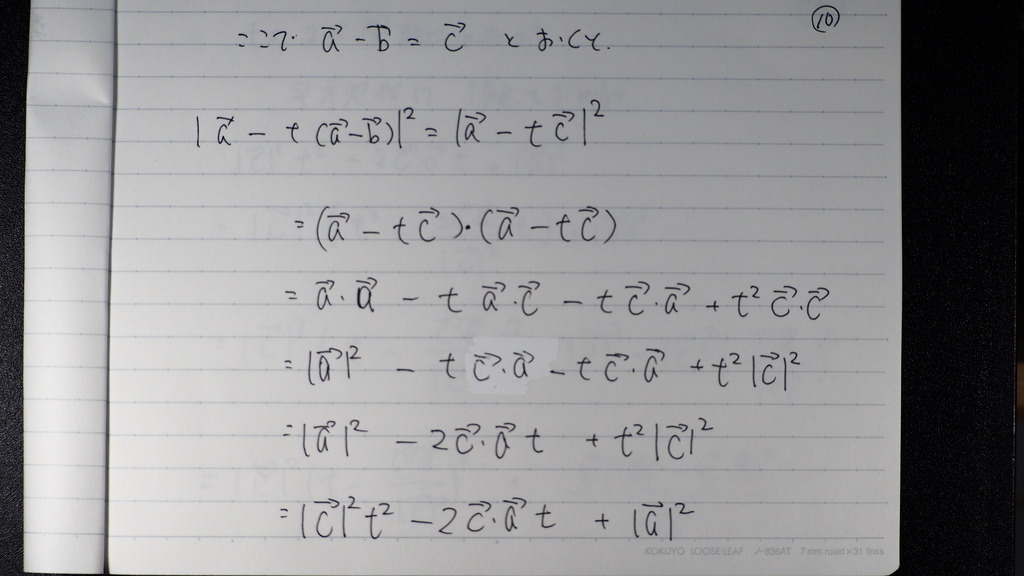 ⑩
ここで a⃗ - b⃗ = c⃗ とおくと.
|a⃗ - t(a⃗-b⃗)|² = |a⃗ - tc⃗|²
= (a⃗ - tc⃗)・(a⃗ - tc⃗)
= a⃗・a⃗ - t a⃗・c⃗ - t c⃗・a⃗ + t² c⃗・c⃗
= |a⃗|² - t c⃗・a⃗ - t c⃗・a⃗ + t²|c⃗|²
= |a⃗|² - 2c⃗・a⃗ t + t²|c⃗|²
= |c⃗|²t² - 2c⃗・a⃗ t + |a⃗|²
KOKUYO LOOSE-LEAF ノ-836AT 7 mm ruled×31 lines